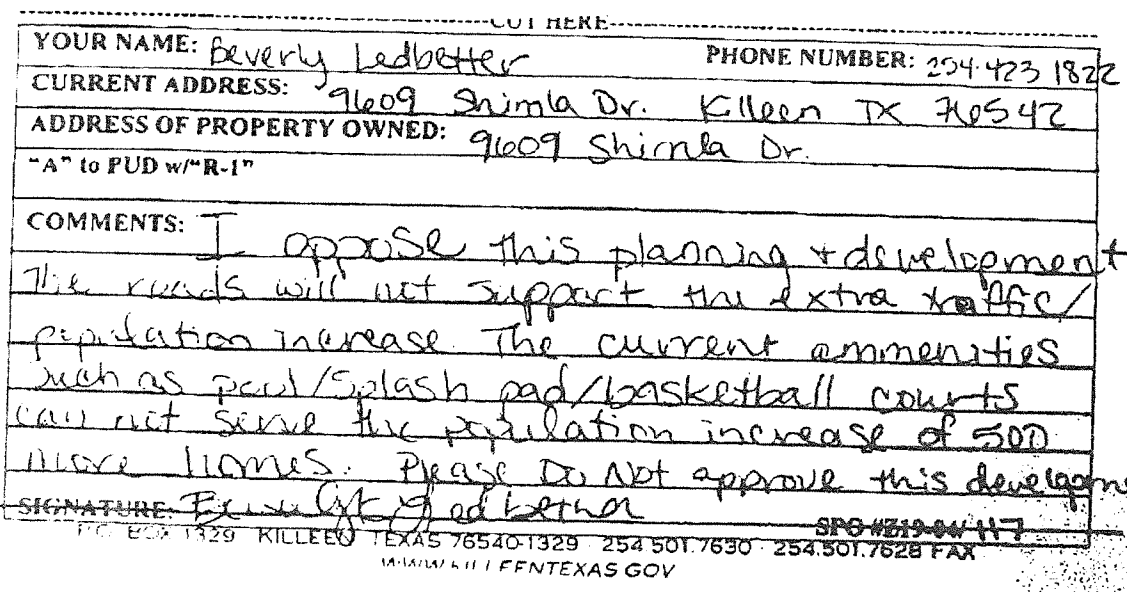 CUT HERE
YOUR NAME: Beverly Ledbetter PHONE NUMBER: 254.423 1822
CURRENT ADDRESS: 9609 Shimla Dr. Killeen TX 76542
ADDRESS OF PROPERTY OWNED: 9609 Shimla Dr.
"A" to PUD w/"R-1"
COMMENTS: I oppose this planning + development
The roads will not support the extra traffic/
population increase. The current ammenities
such as pool/splash pad/basketball courts
can not serve the population increase of 500
more homes. Please Do Not approve this developme
SIGNATURE: Ledbetter
SPO #Z19-04/ 117
P.O. BOX 1329 KILLEEN TEXAS 76540-1329 · 254.501.7630 · 254.501.7628 FAX
WWW.KILLEENTEXAS.GOV